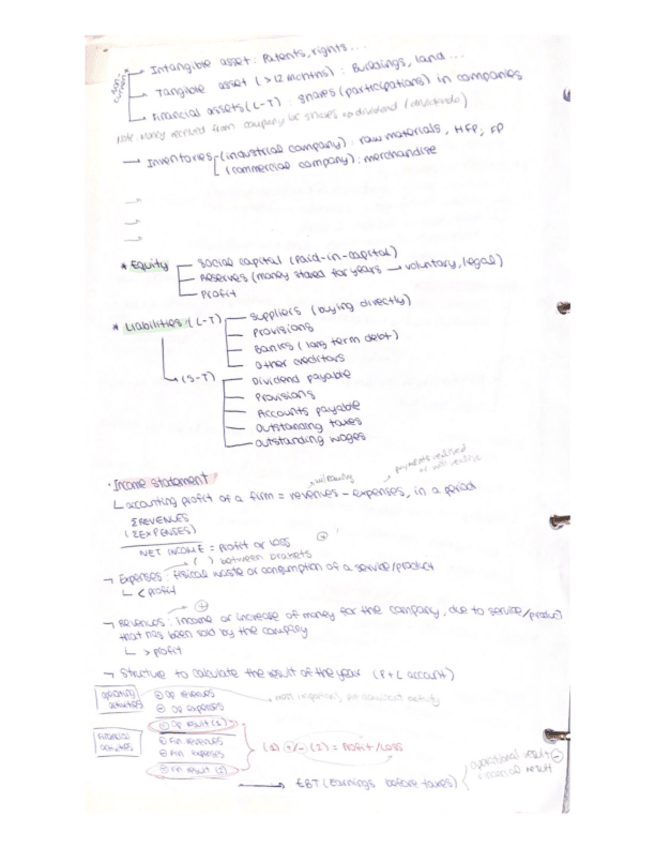 Non-current
Intangible asset: Patents, rights...
Tangible asset (>12 months): Buildings, land...
Financial assets (L-T): shares (participations) in companies
Note: Money received from company for shares → dividend (dividendo)
→ Inventories (industrial company): raw materials, HFP, FP
(commercial company): merchandise
* Equity
Social capital (Paid-in-capital)
Reserves (money stored for years → voluntary, legal)
Profit
* Liabilities: (L-T)
Suppliers (buying directly)
Provisions
Banks (long term debt)
Other creditors
(S-T)
Dividend payable
Provisions
Accounts payable
Outstanding taxes
Outstanding wages
· Income statement
accounting profit of a firm = revenues - expenses, in a period
ΣREVENUES
(ΣEXPENSES)
NET INCOME = profit or loss
( ) between brackets
→ Expenses: fisical waste or consumption of a service/product
< profit
→ Revenues: income or increase of money for the company, due to service/product
that has been sold by the company
> profit
→ Structure to calculate the result of the year (P+L account)
operating activities
+ Op revenues
- Op expenses
most important, activity
= Op result (1)
Financial activities
+ Fin revenues
- Fin expenses
= Fin result (2)
(1) +/- (2) = Profit/Loss
→ EBT (earnings before taxes)
operational result
financial result